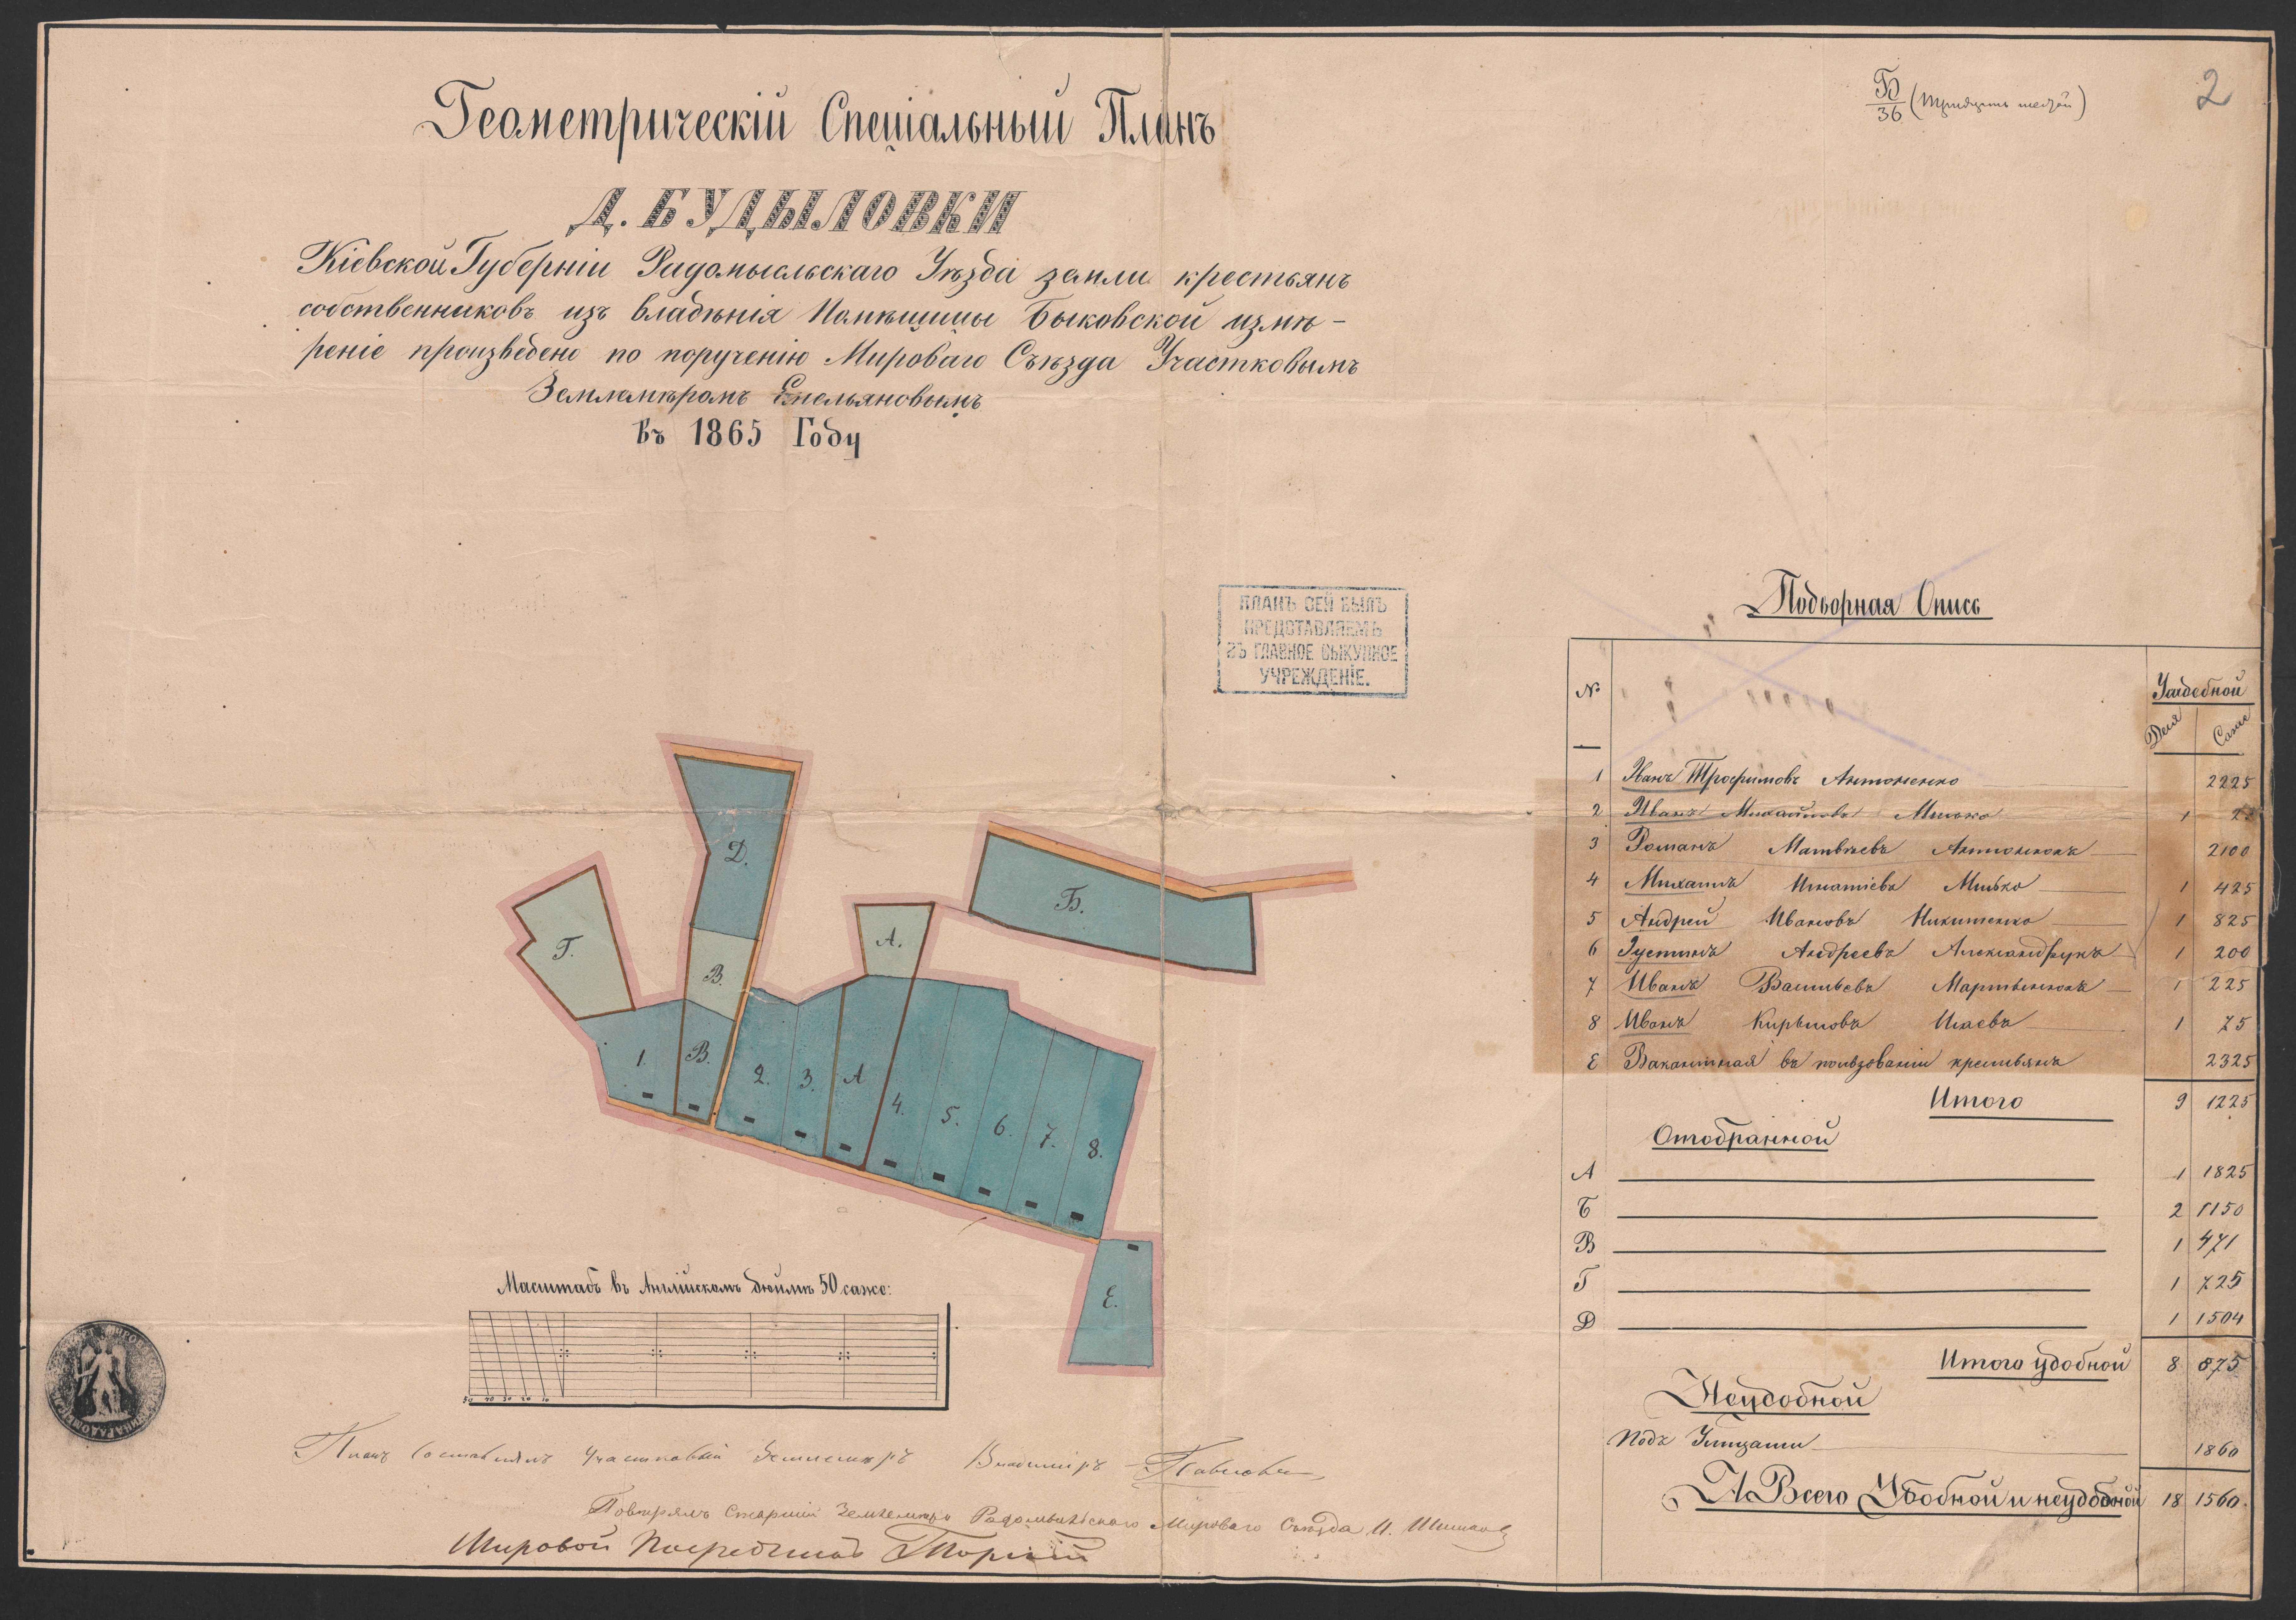 Геометрическій Спеціальный Планъ
Д. БУДЫЛОВКИ
Кіевской Губерніи Радомысльскаго Уѣзда земли крестьянъ
собственниковъ изъ владѣнія Помѣщицы Быковской измѣ-
реніе произведено по порученію Мироваго Съѣзда Участковымъ
Землемѣромъ Емельяновымъ
въ 1865 Году
Б
36 (тридцать шестой)
2
ПЛАНЪ СЕЙ БЫЛЪ
ПРЕДСТАВЛЯЕМЪ
ВЪ ГЛАВНОЕ ВЫКУПНОЕ
УЧРЕЖДЕНІЕ.
Д.
Г.
В.
А.
Б.
1.
В.
2.
3.
А
4.
5.
6.
7.
8.
Е.
Масштабъ въ Англійскомъ дюймѣ 50 саже:
50 40 30 20 10
Планъ Составлялъ Участковый Землемѣръ Владиміръ
Повѣрялъ Старшій Землемѣръ Радомысльскаго Мироваго Съѣзда И.
Мировой Посредникъ
Подворная Опись
№ Усадебной
Деся Саже
1 Иванъ Трофимовъ Антоненко 2225
2 Иванъ Михайловъ Минько 1
3 Романъ Матвѣевъ Антоненокъ 2100
4 Михаилъ Игнатіевъ Минько 1 425
5 Андрей Ивановъ Никитенко 1 825
6 Іустинъ Андреевъ Александрукъ 1 200
7 Иванъ Васильевъ Мартыненокъ 1 225
8 Иванъ Кириловъ Исаевъ 1 75
Е Вакантная въ пользованіи крестьянъ 2325
Итого 9 1225
Отобранной
А 1 1825
Б 2 1150
В 1 471
Г 1 725
Д 1 1504
Итого удобной 8 875
Неудобной
Подъ Улицами 1860
А Всего Удобной и неудобной 18 1560.